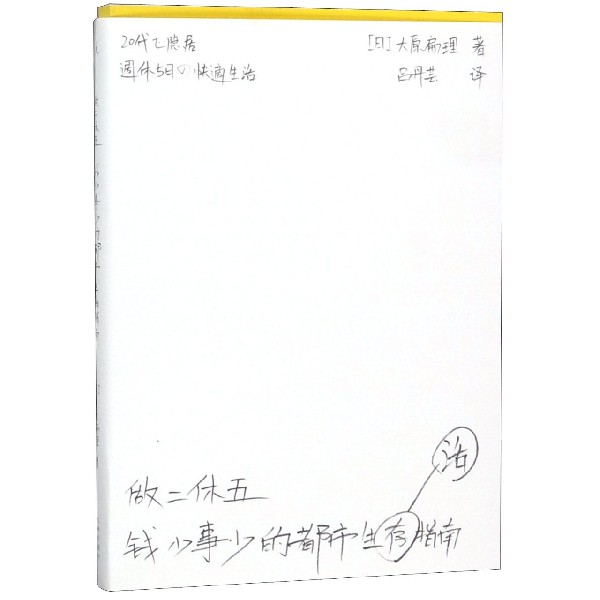 20代で隠居
週休5日の快適生活
[日] 大原扁理 著
吕丹芸 译
活
做二休五
钱少事少的都市生存指南